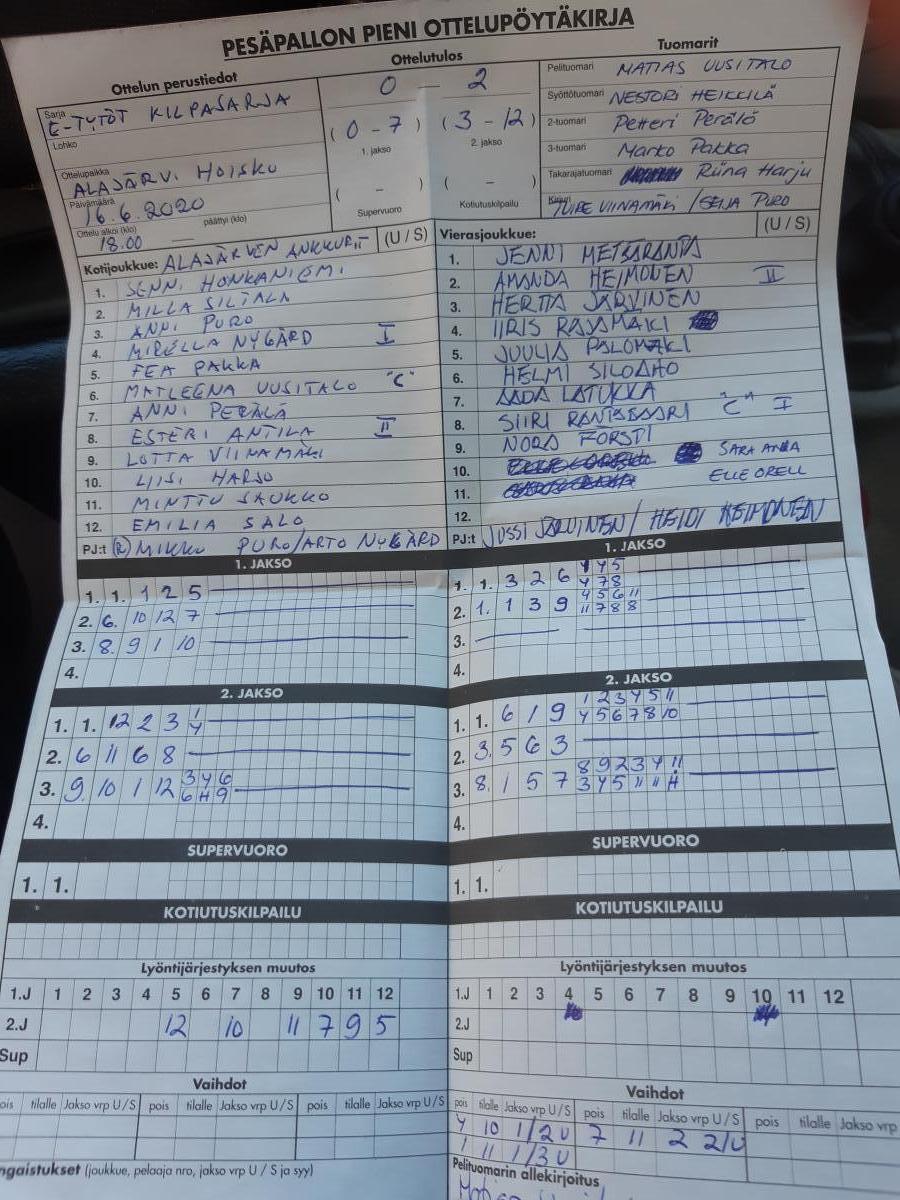 PESÄPALLON PIENI OTTELUPÖYTÄKIRJA
Ottelun perustiedot
Sarja
E-TYTÖT KILPASARJA
Lohko
Ottelupaikka
ALAJÄRVI HOISKO
Päivämäärä
16.6.2020
Ottelu alkoi (klo) päättyi (klo)
18.00 —
Ottelutulos
0 - 2
(0 - 7) (3 - 12)
1. jakso 2. jakso
( - ) ( - )
Supervuoro Kotiutuskilpailu
Tuomarit
Pelituomari MATIAS UUSITALO
Syöttötuomari NESTORI HEIKKILÄ
2-tuomari Petteri Perälä
3-tuomari Marko Pakka
Takarajatuomari Riina Harju
Kirjuri TUIRE VIINAMÄKI / SEIJA PURO
Kotijoukkue: ALAJÄRVEN ANKKURIT (U / S)
1. SENNI HONKANIEMI
2. MILLA SILTALA
3. ANNI PURO
4. MIRELLA NYGÅRD I
5. FEA PAKKA
6. MATLEENA UUSITALO "C"
7. ANNI PERÄLÄ
8. ESTERI ANTILA II
9. LOTTA VIINAMÄKI
10. LIISI HARJU
11. MINTTU SAUKKO
12. EMILIA SALO
PJ:t (R) MIKKO PURO/ARTO NYGÅRD
Vierasjoukkue: (U / S)
1. JENNI METSÄRANTA
2. AMANDA HEIMONEN II
3. HERTTA JÄRVINEN
4. IIRIS RAJAMÄKI
5. JUULIA PALOMÄKI
6. HELMI SILOAHO
7. AADA LATUKKA
8. SIIRI RANTASAARI "C" I
9. NOORA FORSTI
10. SARA
11. ELLE ORELL
12.
PJ:t JUSSI JÄRVINEN / HEIDI HEIMONEN
1. JAKSO
1. 1. 1 2 5
2. 6. 10 12 7
3. 8. 9 1 10
4.
2. JAKSO
1. 1. 12 2 3 1
4
2. 6 11 6 8
3. 9. 10 1 12 3 4 6
6 11 9
4.
SUPERVUORO
1. 1.
KOTIUTUSKILPAILU
Lyöntijärjestyksen muutos
1.J 1 2 3 4 5 6 7 8 9 10 11 12
2.J 12 10 11 7 9 5
Sup
Vaihdot
pois tilalle Jakso vrp U / S pois tilalle Jakso vrp U / S pois tilalle Jakso vrp U / S
ngaistukset (joukkue, pelaaja nro, jakso vrp U / S ja syy)
1. JAKSO
1. 1. 3 2 6 4 4 5
4 7 8
2. 1. 1 3 9 4 5 6 11
11 7 8 8
3.
4.
2. JAKSO
1. 1. 6 1 9 1 2 3 4 5 11
4 5 6 7 8 10
2. 3. 5 6 3
3. 8. 1 5 7 8 9 2 3 4 11
3 4 5 11 11
4.
SUPERVUORO
1. 1.
KOTIUTUSKILPAILU
Lyöntijärjestyksen muutos
1.J 1 2 3 4 5 6 7 8 9 10 11 12
2.J
Sup
Vaihdot
pois tilalle Jakso vrp U / S pois tilalle Jakso vrp U / S pois tilalle Jakso vrp
4 10 1/2 U 7 11 2 2/U
1 11 1/3 U
Pelituomarin allekirjoitus